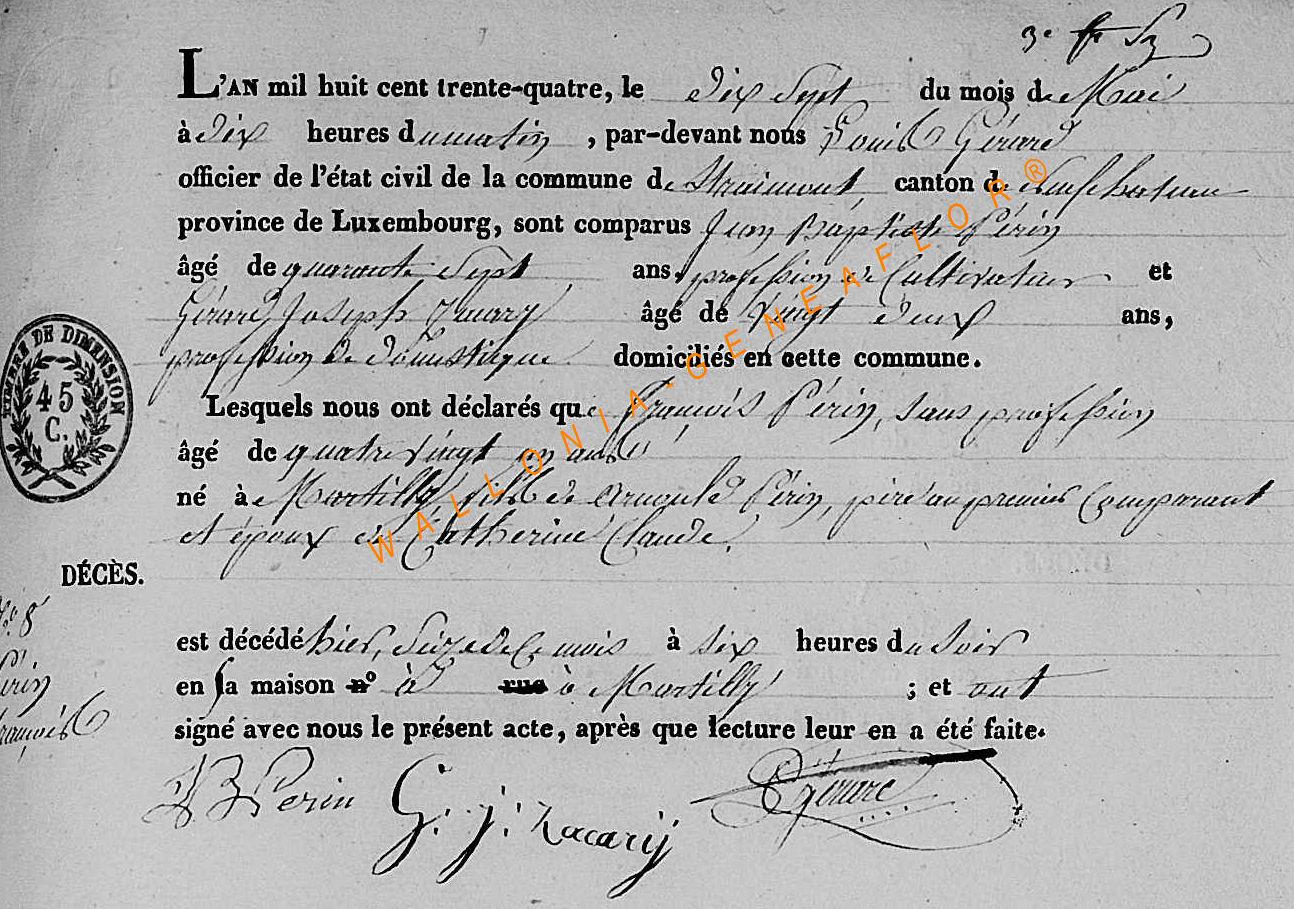 3e
L'AN mil huit cent trente-quatre, le dix sept du mois de Mai
à dix heures du matin, par-devant nous Louis Gérard
officier de l'état civil de la commune de Straimont, canton de neufchateau
province de Luxembourg, sont comparus Jean Baptiste Périn
âgé de quarante sept ans, profession de Cultivateur et
Gérard Joseph âgé de vingt deux ans,
profession de domestique domiciliés en cette commune.
TIMBRE DE DIMENSION
45
C.
Lesquels nous ont déclarés que François Périn, sans profession
âgé de quatre vingt un ans
né à Martilly, fils de Arnould Périn, père au premier Comparant
et époux de Catherine Claude.
DÉCÈS.
No. 8
Périn
François
est décédé hier, Seize de Ce mois à six heures du soir
en sa maison n° à rue à Martilly ; et ont
signé avec nous le présent acte, après que lecture leur en a été faite.
JB Perin G. J. Zacarij L Gérard
WALLONIA-GENEAFLOR®